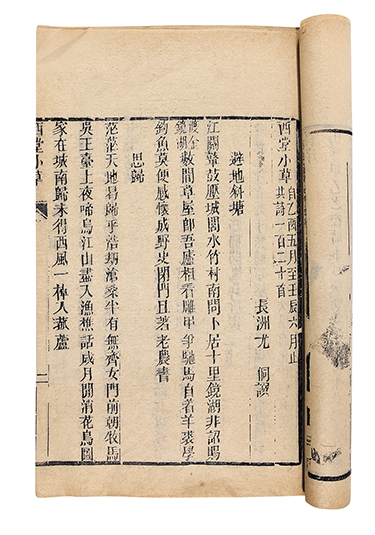 西堂小草 自乙酉五月至壬辰六月止
共詩一百二十首
長洲尤 侗譔
避地斜塘
江關鼙鼓壓城閭水竹村南問卜居十里鏡湖非詔賜
鏡湖
數間草屋卽吾廬相看爭馳馬自着羊裘學
釣魚莫便感懷成野史閉門且著老農書
思歸
茫茫天地易歸乎浩刼滄桑半有無齊女門前朝牧馬
吳王臺上夜啼烏江山盡入漁樵話歲月閒消花鳥圖
家在城南歸未得西風一棹入菰蘆
西堂小草
一